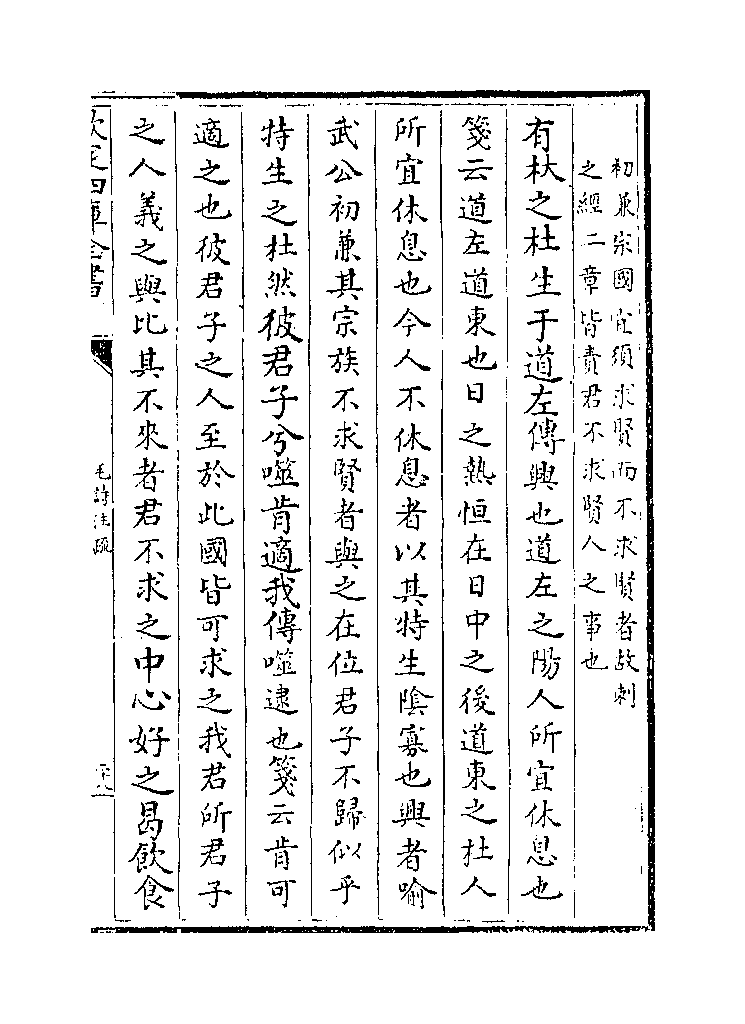 初兼宗國宜須求賢而不求賢者故刺
之經二章皆責君不求賢人之事也
有杕之杜生于道左傳興也道左之陽人所宜休息也
箋云道左道東也日之熱恒在日中之後道東之杜人
所宜休息也今人不休息者以其特生陰寡也興者喻
武公初兼其宗族不求賢者與之在位君子不歸似乎
特生之杜然彼君子兮噬肯適我傳噬逮也箋云肯可
適之也彼君子之人至於此國皆可求之我君所君子
之人義之與比其不來者君不求之中心好之曷飲食
欽定四庫全書
毛詩注疏